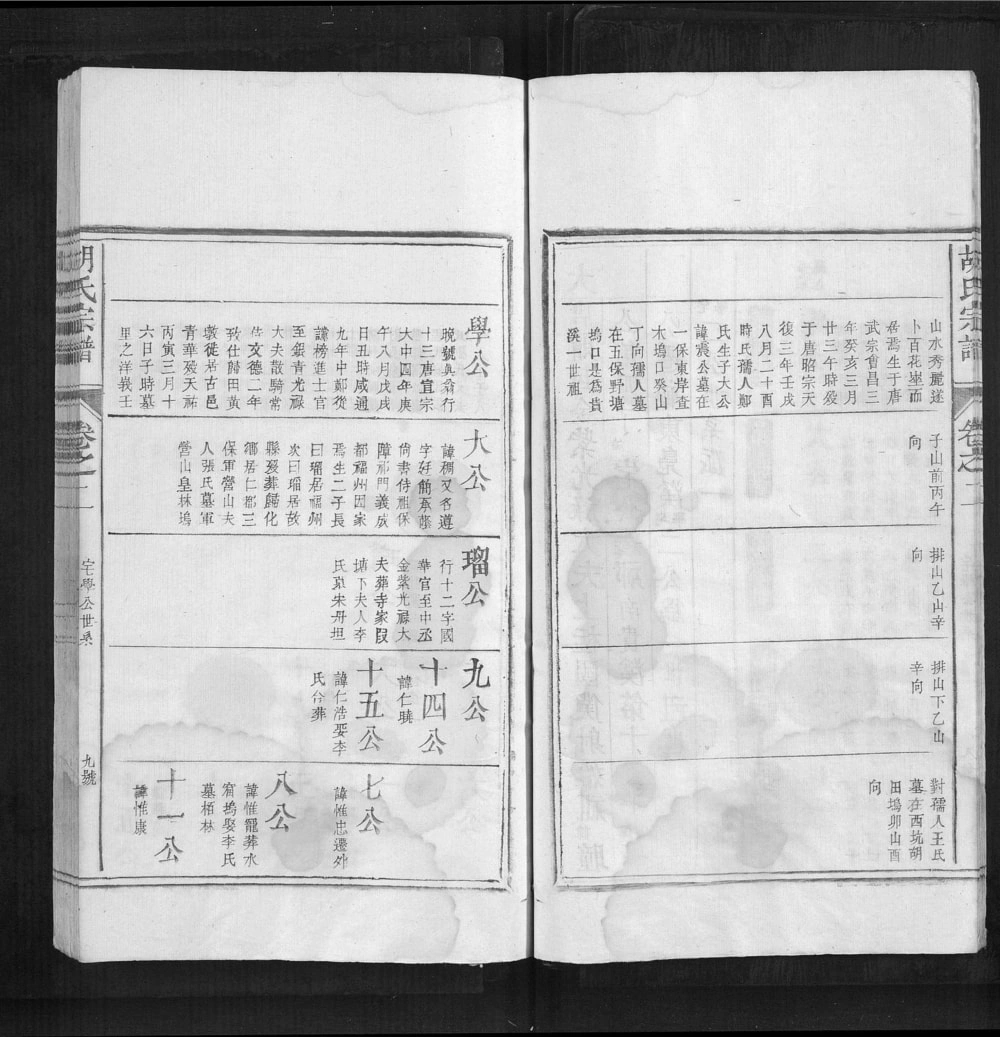 胡氏宗譜
卷之二
山水秀麗遂
卜百花塢而
居焉生于唐
武宗會昌三
年癸亥三月
廿三午時歿
于唐昭宗天
復三年壬戌
八月二十酉
時氏孺人鄭
氏生子大公
諱震公墓在
一保東岸查
木塢口癸山
丁向孺人墓
在五保野塘
塢口是為貴
溪一世祖
子山前丙午
向
排山乙山辛
向
排山下乙山
辛向
對孺人王氏
墓在西坑胡
田塢卯山酉
向
學公
晚號眞翁行
十三唐宣宗
大中四年庚
午八月戊戌
日丑時咸通
九年中鄭從
讜榜進士官
至銀青光祿
大夫散騎常
侍文德二年
致仕歸田黃
敦徙居古邑
青華歿天祐
丙寅三月十
六日子時墓
里之洋義王
大公
諱稠又名遵
字廷簡承蔭
尚書侍祖保
障祁門義成
都福州因家
焉生二子長
曰瑠居福州
次曰瑫居故
縣歿葬歸化
鄉居仁都三
保軍營山夫
人張氏墓軍
營山皇林塢
瑠公
行十二字國
華官至中丞
金紫光祿大
夫葬寺家段
塘下夫人李
氏東宋丹坦
九公
十四公
諱仁曉
十五公
諱仁浩娶李
氏合葬
七公
諱惟忠遷外
八公
諱惟寵葬水
窟塢娶李氏
墓栢林
十一公
諱惟康
胡氏宗譜
卷之二
宅學公世系
九號